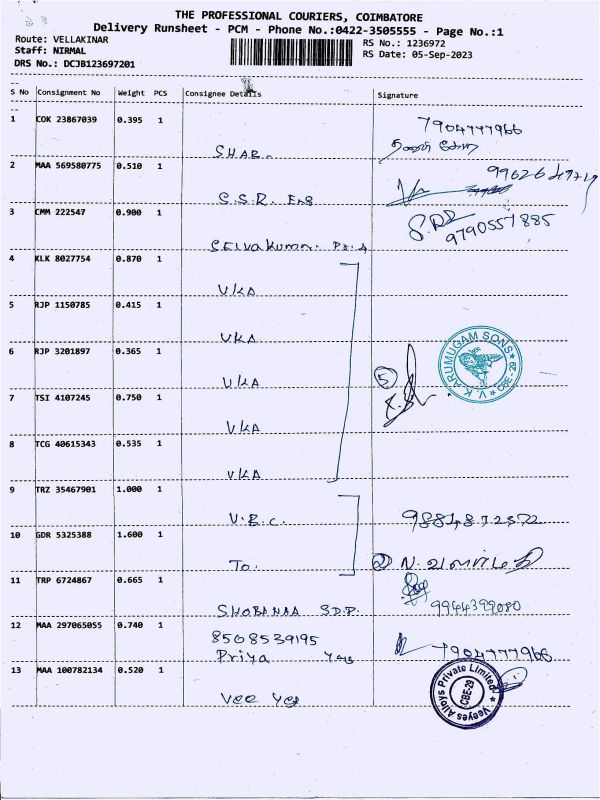 THE PROFESSIONAL COURIERS, COIMBATORE
Delivery Runsheet - PCM - Phone No.:0422-3505555 - Page No.:1
Route: VELLAKINAR
RS No.: 1236972
Staff: NIRMAL
RS Date: 05-Sep-2023
DRS No.: DCJB123697201
S No Consignment No Weight PCS Consignee Details Signature
1 COK 23867039 0.395 1
7904777966
SHAR.
2 MAA 569580775 0.510 1
S.S.R. Eng
3 CMM 222547 0.900 1
9790557885
Selvakumar.
4 KLK 8027754 0.870 1
VKA
5 RJP 1150785 0.415 1
VKA
6 RJP 3201897 0.365 1
V.K.ARUMUGAM SONS
CBE-29
VKA
5
7 TSI 4107245 0.750 1
VKA
8 TCG 40615343 0.535 1
VKA
9 TRZ 35467901 1.000 1
V.B.C.
10 GDR 5325388 1.600 1
To.
2 N.
11 TRP 6724867 0.665 1
SHOBANAA S.D.P.
9944399080
12 MAA 297065055 0.740 1
8508539195
Priya
7904777966
13 MAA 100782134 0.520 1
Vee Yes
Veeyes Alloys Private Limited
CBE-29